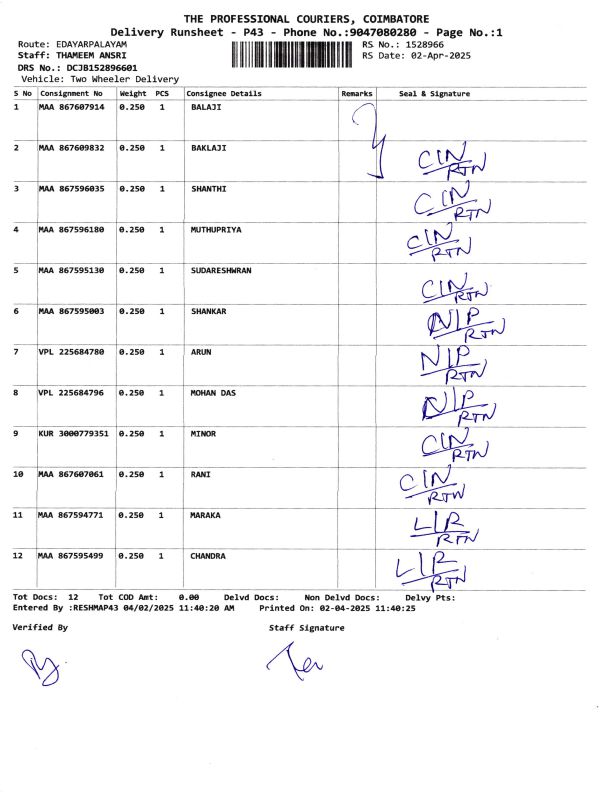 THE PROFESSIONAL COURIERS, COIMBATORE
Delivery Runsheet - P43 - Phone No.:9047080280 - Page No.:1
Route: EDAYARPALAYAM RS No.: 1528966
Staff: THAMEEM ANSRI RS Date: 02-Apr-2025
DRS No.: DCJB152896601
Vehicle: Two Wheeler Delivery
S No Consignment No Weight PCS Consignee Details Remarks Seal & Signature
1 MAA 867607914 0.250 1 BALAJI
2 MAA 867609832 0.250 1 BAKLAJI CIN/RTN
3 MAA 867596035 0.250 1 SHANTHI CIN/RTN
4 MAA 867596180 0.250 1 MUTHUPRIYA CIN/RTN
5 MAA 867595130 0.250 1 SUDARESHWRAN CIN/RTN
6 MAA 867595003 0.250 1 SHANKAR NIP/RTN
7 VPL 225684780 0.250 1 ARUN NIP/RTN
8 VPL 225684796 0.250 1 MOHAN DAS NIP/RTN
9 KUR 3000779351 0.250 1 MINOR CIN/RTN
10 MAA 867607061 0.250 1 RANI CIN/RTN
11 MAA 867594771 0.250 1 MARAKA LIR/RTN
12 MAA 867595499 0.250 1 CHANDRA LIR/RTN
Tot Docs: 12 Tot COD Amt: 0.00 Delvd Docs: Non Delvd Docs: Delvy Pts:
Entered By :RESHMAP43 04/02/2025 11:40:20 AM Printed On: 02-04-2025 11:40:25
Verified By Staff Signature